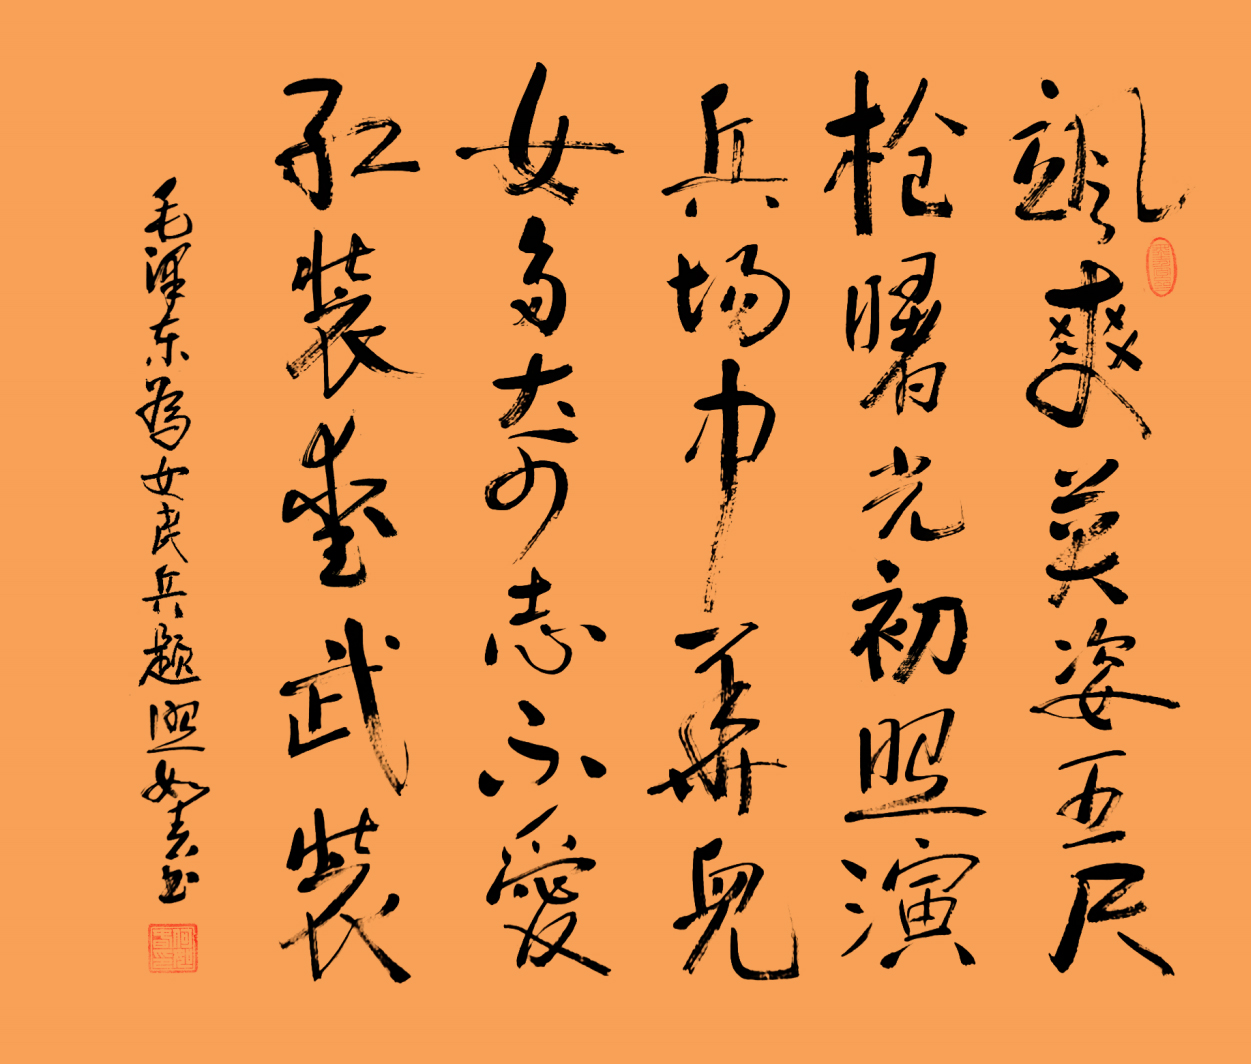 颯爽英姿五尺
枪曙光初照演
兵場中華兒
女多奇志不愛
红装爱武装
毛泽东為女民兵题照如书